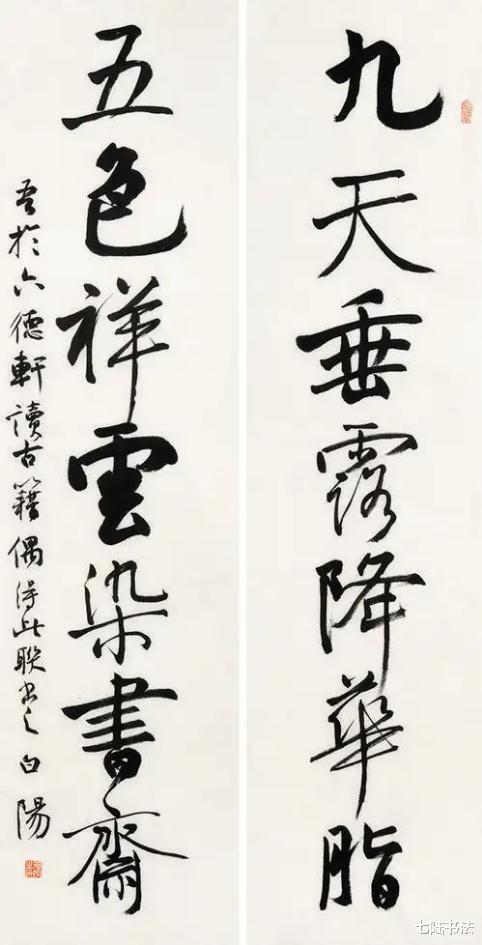 九天垂露降華脂
五色祥雲染書齋
吾於六德軒讀古籍偶得此聯書之白陽
七陆书法